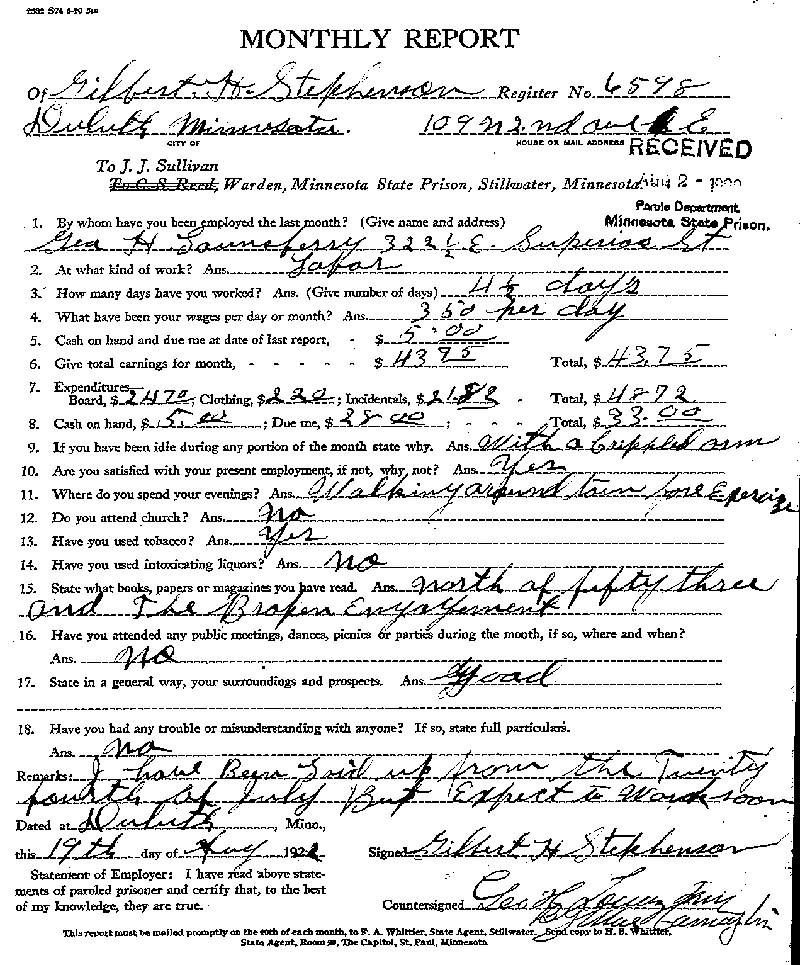 MONTHLY REPORT
Of Gilbert H. Stephenson Register No. 6598
Duluth Minnesota. 109 N 2nd ave E
CITY OF HOUSE OR MAIL ADDRESS RECEIVED
To J. J. Sullivan
To C. S. Reed, Warden, Minnesota State Prison, Stillwater, Minnesota AUG 2 -
Parole Department
Minnesota State Prison.
1. By whom have you been employed the last month? (Give name and address)
Geo H Lounsberry 322 1/2 E. Superior St
2. At what kind of work? Ans. Labor
3. How many days have you worked? Ans. (Give number of days) days
4. What have been your wages per day or month? Ans. 3 50 per day
5. Cash on hand and due me at date of last report, - $ 5.00
6. Give total earnings for month, - - - - - $ 43 75 Total, $ 43.75
7. Expenditures
Board, $ 24 70; Clothing, $ 2 20; Incidentals, $ 21.82 - Total, $ 48 72
8. Cash on hand, $ 5.00; Due me, $ 28 00; - - - Total, $ 33.00
9. If you have been idle during any portion of the month state why. Ans. With a Crippled arm
10. Are you satisfied with your present employment, if not, why, not? Ans. Yes
11. Where do you spend your evenings? Ans. Walking around town fore Exercise
12. Do you attend church? Ans. No
13. Have you used tobacco? Ans. Yes
14. Have you used intoxicating liquors? Ans. No
15. State what books, papers or magazines you have read. Ans. North of fifty three
and The Broken Engagement
16. Have you attended any public meetings, dances, picnics or parties during the month, if so, where and when?
Ans. No
17. State in a general way, your surroundings and prospects. Ans. Good
18. Have you had any trouble or misunderstanding with anyone? If so, state full particulars.
Ans. No
Remarks: I have Been Laid up from the Twenty
fourth of July But Expect to Work soon
Dated at Duluth, Minn.,
this 19th day of Aug 192 Signed Gilbert H Stephenson
Statement of Employer: I have read above state-
ments of paroled prisoner and certify that, to the best
of my knowledge, they are true. Countersigned Geo H
This report must be mailed promptly on the 20th of each month, to F. A. Whittier, State Agent, Stillwater. Send copy to H. B. Whittier,
State Agent, Room, The Capitol, St. Paul, Minnesota